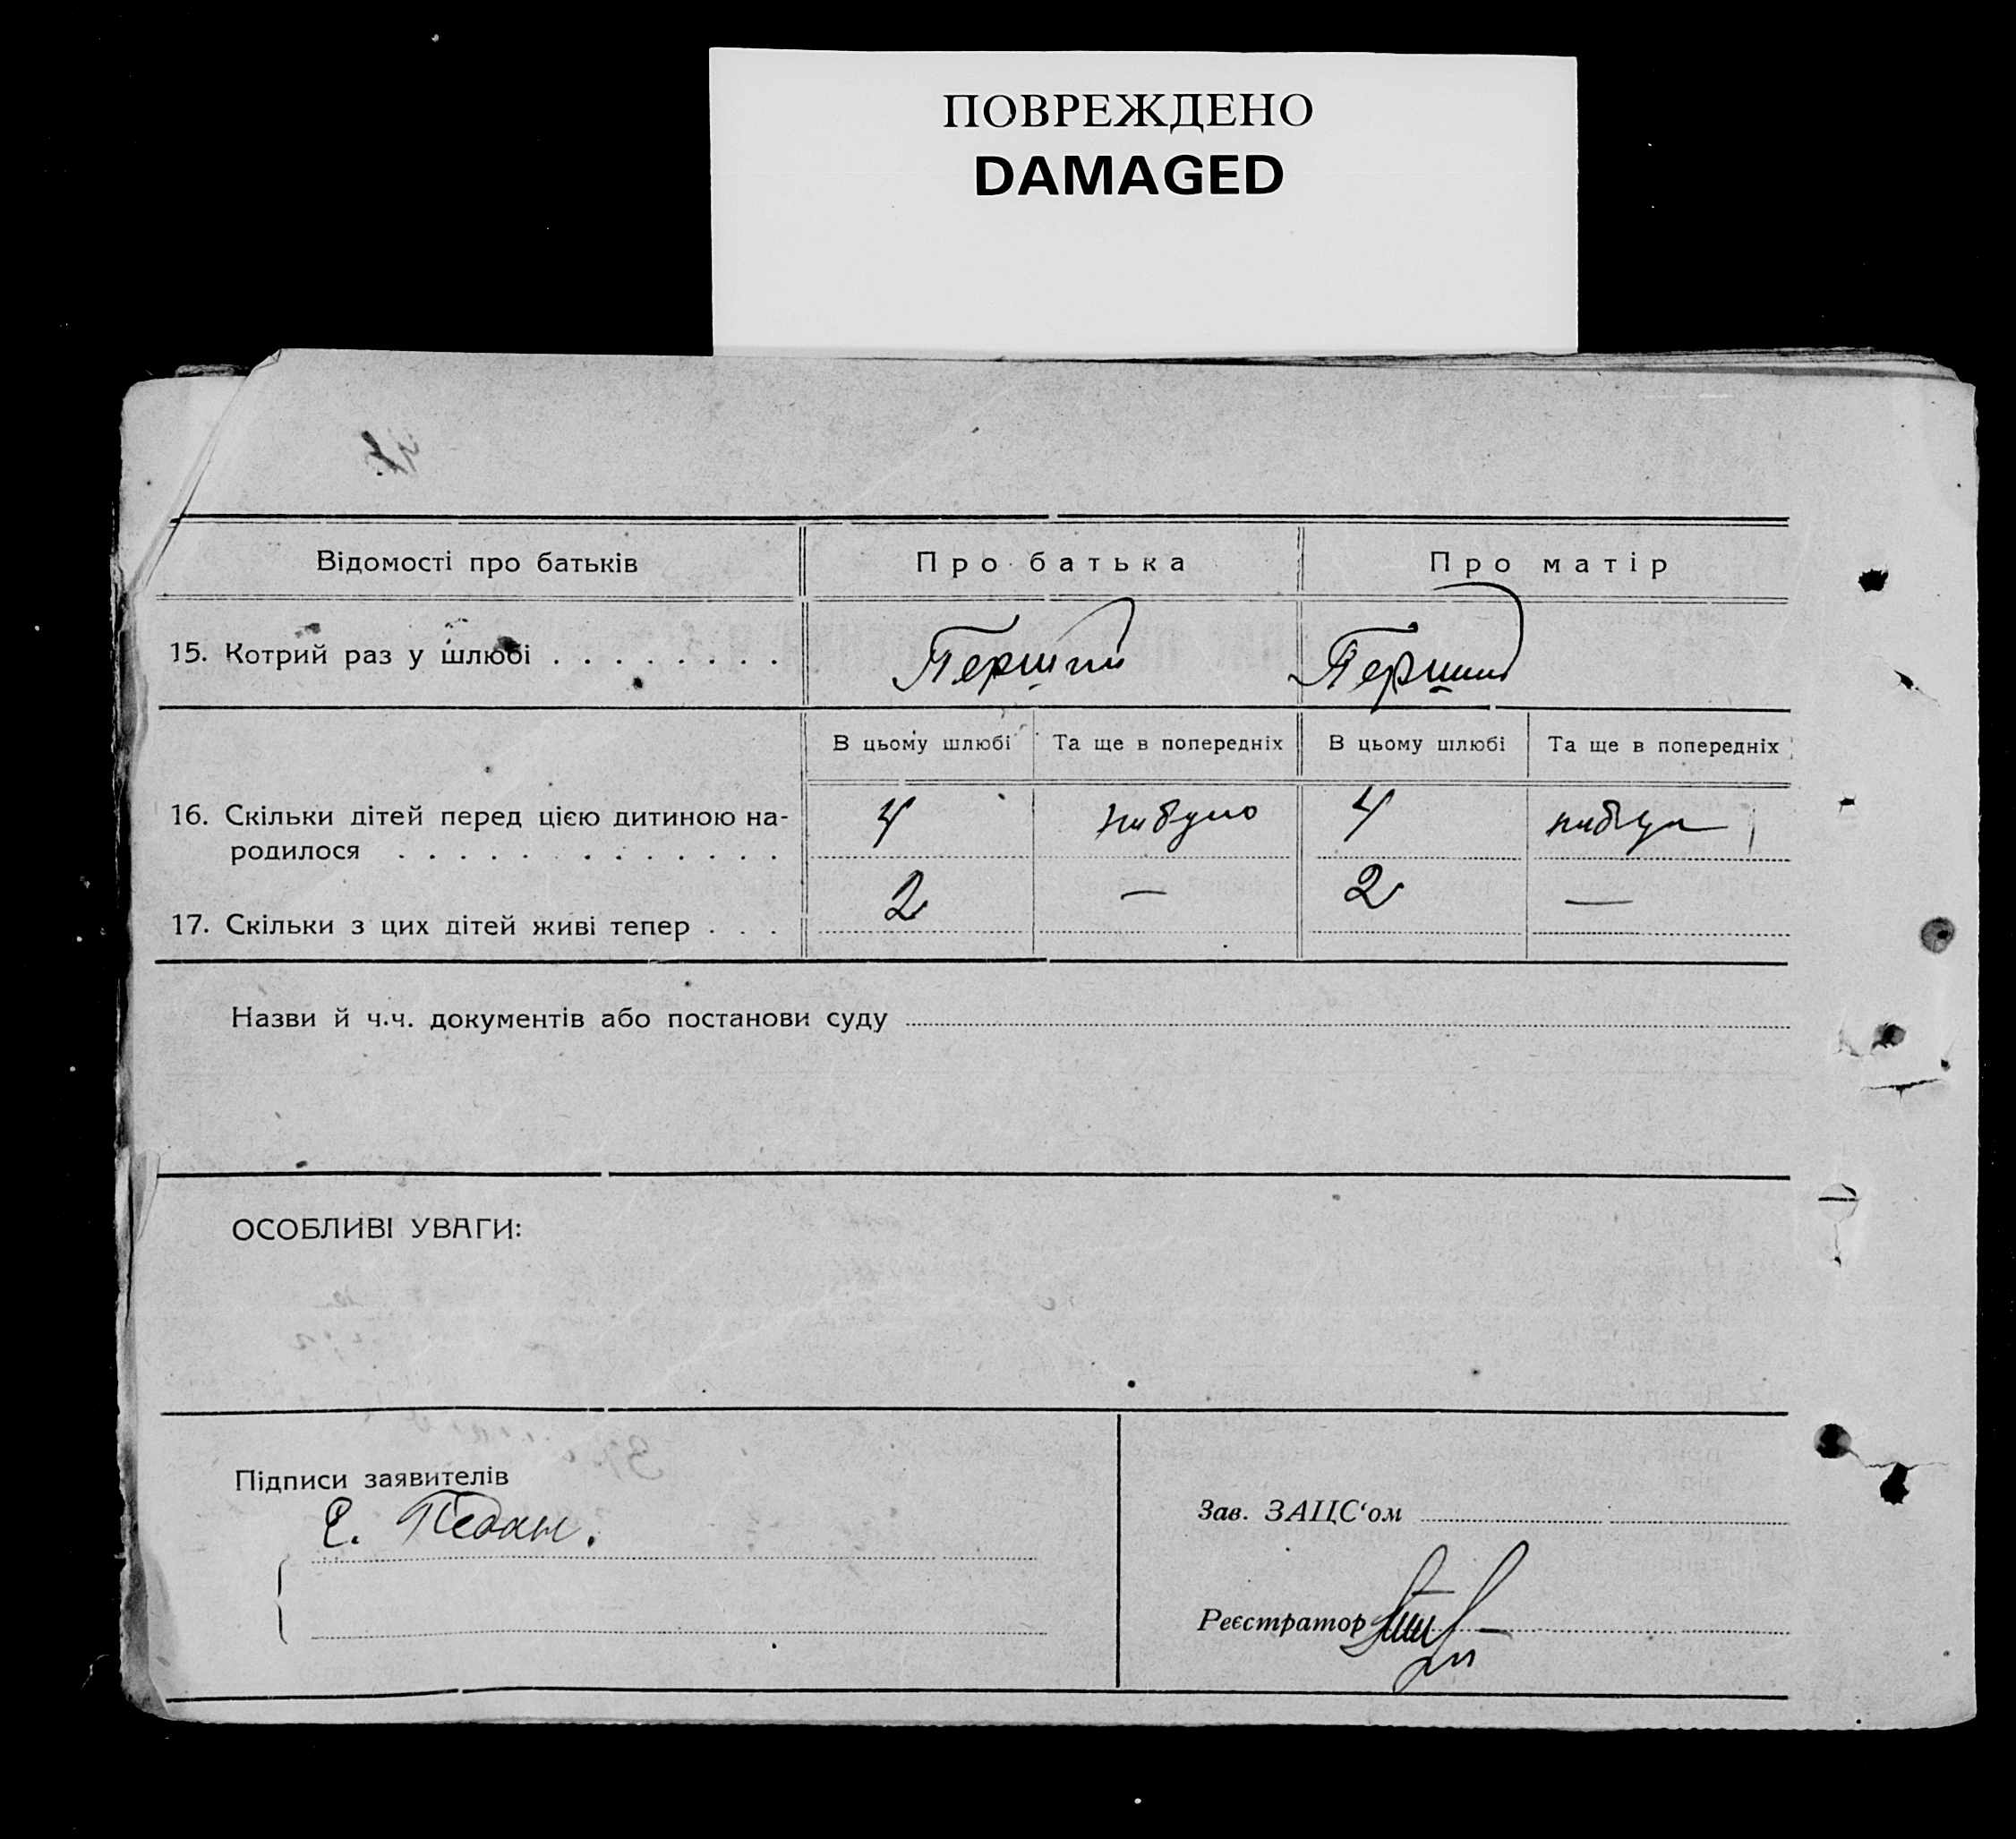 ПОВРЕЖДЕНО
DAMAGED
Відомості про батьків
Про батька
Про матір
15. Котрий раз у шлюбі . . . . . . . .
Перший
Перший
В цьому шлюбі
Та ще в попередніх
В цьому шлюбі
Та ще в попередніх
16. Скільки дітей перед цією дитиною на-
родилося . . . . . . . . . . . . .
4
нибуло
4
17. Скільки з цих дітей живі тепер . . .
2
—
2
—
Назви й ч.ч. документів або постанови суду
ОСОБЛИВІ УВАГИ:
Підписи заявителів
Є. Педан.
Зав. ЗАЦС‘ом
Реєстратор